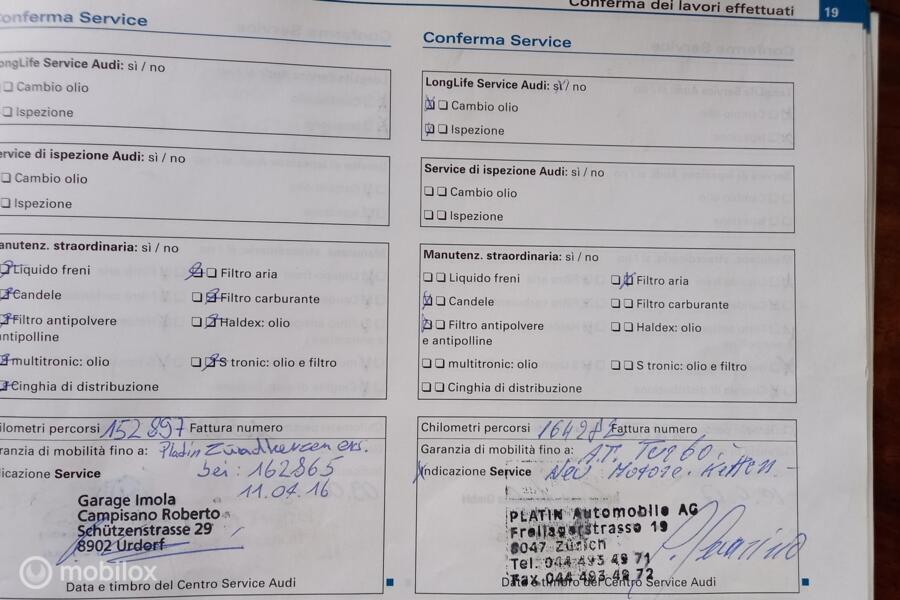 Conferma dei lavori effettuati 19
onferma Service
ongLife Service Audi: sì / no
Cambio olio
Ispezione
ervice di ispezione Audi: sì / no
Cambio olio
Ispezione
anutenz. straordinaria: sì / no
Liquido freni
Filtro aria
Candele
Filtro carburante
Filtro antipolvere
antipolline
Haldex: olio
multitronic: olio
S tronic: olio e filtro
Cinghia di distribuzione
ilometri percorsi 152897 Fattura numero
ranzia di mobilità fino a: Platin Zündkerzen ers.
dicazione Service bei: 162865
11.04.16
Garage Imola
Campisano Roberto
Schützenstrasse 29
8902 Urdorf
Data e timbro del Centro Service Audi
Conferma Service
LongLife Service Audi: sì / no
Cambio olio
Ispezione
Service di ispezione Audi: sì / no
Cambio olio
Ispezione
Manutenz. straordinaria: sì / no
Liquido freni
Filtro aria
Candele
Filtro carburante
Filtro antipolvere
e antipolline
Haldex: olio
multitronic: olio
S tronic: olio e filtro
Cinghia di distribuzione
Chilometri percorsi 164982 Fattura numero
Garanzia di mobilità fino a: A.T. Turbo
Indicazione Service Neu Motore. Ketten -
PLATIN Automobile AG
Freilagerstrasse 19
8047 Zürich
Tel. 044 493 49 71
Fax 044 493 49 72
Data e timbro del Centro Service Audi
mobilox